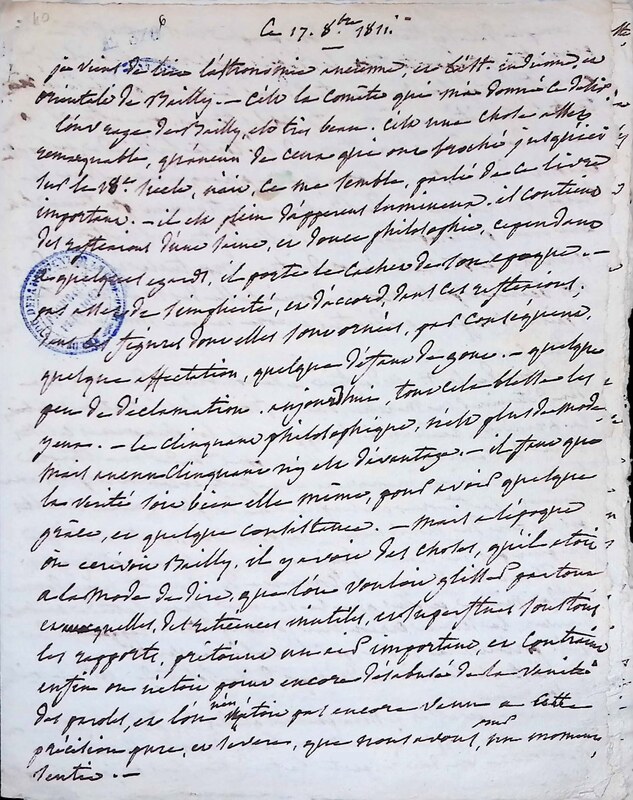 Ce 17. 8bre 1811.
je viens de lire l'astronomie ancienne, et l'hist. indienne, et
orientale de Bailly. — C'est la comète que m'a donné ce
l'ouvrage de Bailly, est très beau. C'est une chose assez
remarquable, qu'aucun de ceux qui ont broché jusqu'ici
sur le 18e siecle, n'aie, ce me semble, parlé de ce livre
important. — il est plein d'apperçus lumineux. il contient
des reflexions d'une saine, et douce philosophie, cependant
a quelques egards, il porte le cachet de son epoque. —
pas assez de simplicité, et d'accord dans ces reflexions,
les figures dont elles sont ornées, par consequent,
quelque affectation, quelque défaut de gout. — quelque
peu de déclamation. aujourd'hui, tout cela blesse les
yeux. — le clinquant philosophique, n'est plus de mode,
mais aucun clinquant n'y est d'avantage. — il faut que
la verité soit bien elle même, pour avoir quelque
grâce, et quelque consistance. — mais a l'epoque
où ecrivoit Bailly, il y avoit des choses, qu'il etoit
a la mode de dire, que l'on vouloit glisser partout
et auxquelles, des reticences inutiles, et superflues sous tous
les rapports, pretoient un air important, et contraint
enfin on n'etoit point encore désabusé de la vanité
des paroles, et l'on n'en etoit pas encore venu a cette
précision pure, et severe, que nous avons, un moment
sentie. —